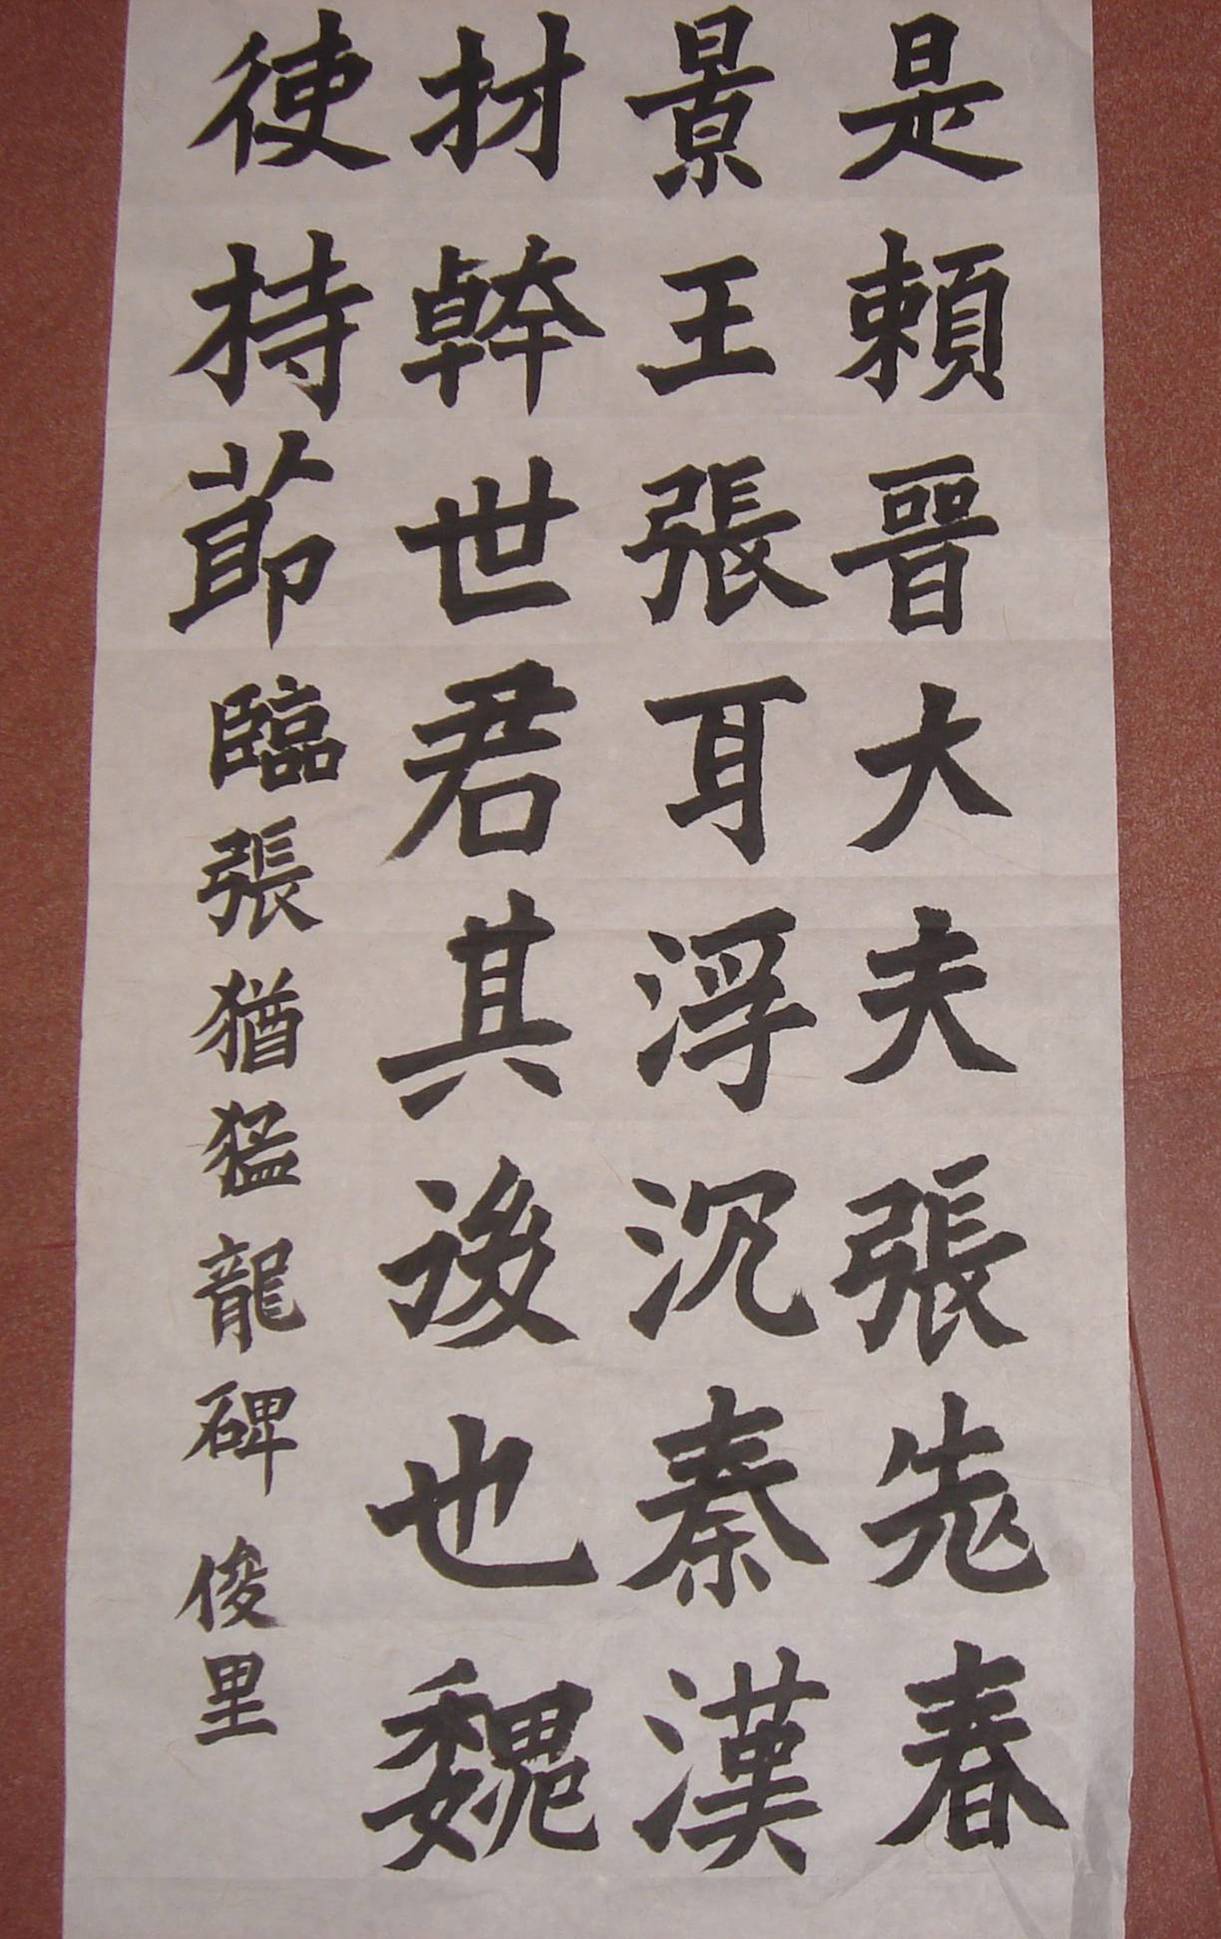 是頼晉大夫張先春
景王張耳浮沉秦漢
材幹世君其後也魏
使持節臨張猶猛龍碑俊里